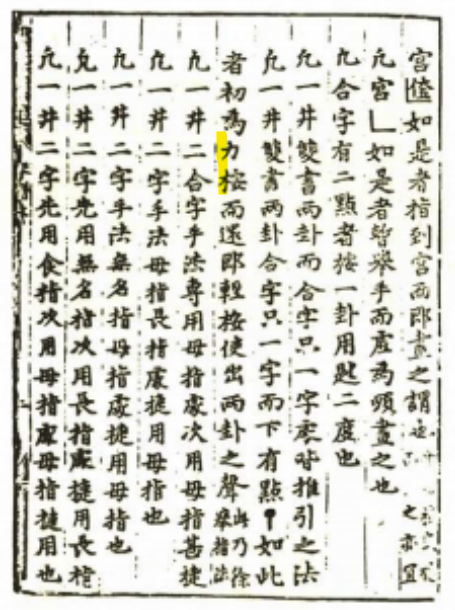 宮 如是者指到宮而卽畫之謂也
凢宮 如是者暫擧手而虛爲頭畫之也
凢合字有二點者按一卦用匙二度也
凢一井雙書兩卦而合字只一字處皆推引之法
凢一井雙書兩卦合字只一字而下有點 如此
者初爲力按而還卽輕按使出兩卦之聲此乃徐擧指法
凢一井二合字手法專用母指處次用母指甚捷
凢一井二字手法母指長指處捷用母指也
凢一井二字手法無名指母指處捷用母指也
凢一井二字先用無名指次用長指處捷用長指
凢一井二字先用食指次用母指處母指捷用也